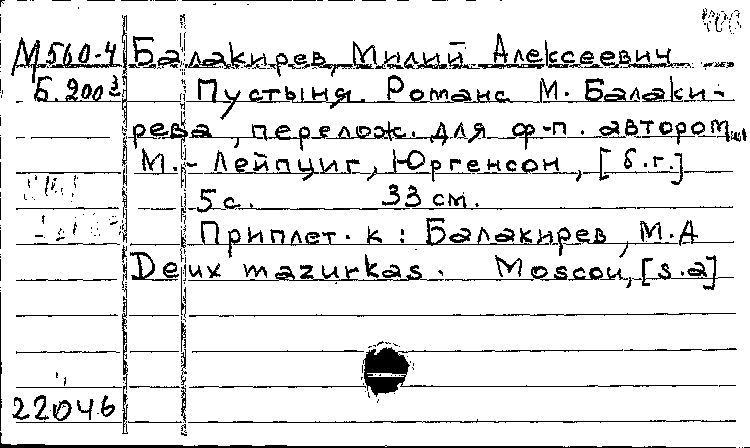 400
М560-4 Балакирев, Милий Алексеевич
Б.200³ Пустыня. Романс М. Балаки-
рева, перелож. для ф-п. автором
М.- Лейпциг, Юргенсон, [б.г.]
5 с. 33 см.
Приплет. к: Балакирев, М.А
Deux mazurkas. Moscou, [s.a]
22046